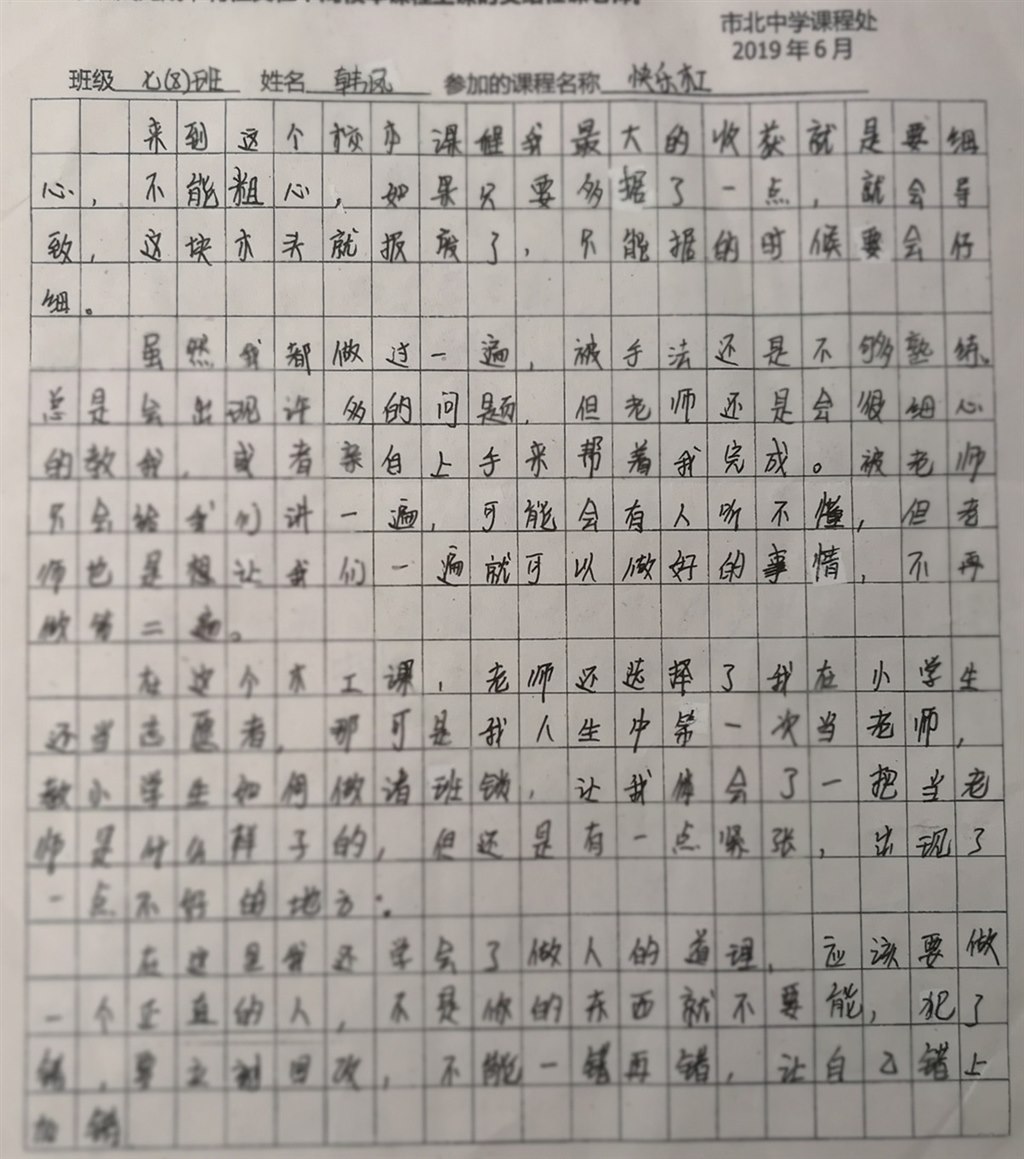 市北中学课程处
2019年6月
班级 七(8)班 姓名 韩风 参加的课程名称 快乐木工
来到这个校本课程我最大的收获就是要细
心，不能粗心，如果只要多据了一点，就会导
致，这块木头就报废了，只能据的时候要会仔
细。
虽然我都做过一遍，被手法还是不够熟练。
总是会出现许多的问题，但老师还是会很细心
的教我，或者亲自上手来帮着我完成。被老师
只会给我们讲一遍，可能会有人听不懂，但老
师也是想让我们一遍就可以做好的事情，不再
做第二遍。
在这个木工课，老师还选择了我在小学生
还当志愿者，那可是我人生中第一次当老师，
教小学生如何做诸班锁，让我体会了一把当老
师是什么样子的，但还是有一点紧张，出现了
一点不好的地方：。
在这里我还学会了做人的道理，应该要做
一个正直的人，不是你的东西就不要能，犯了
错，要立刻回改，不能一错再错，让自己错上
加错